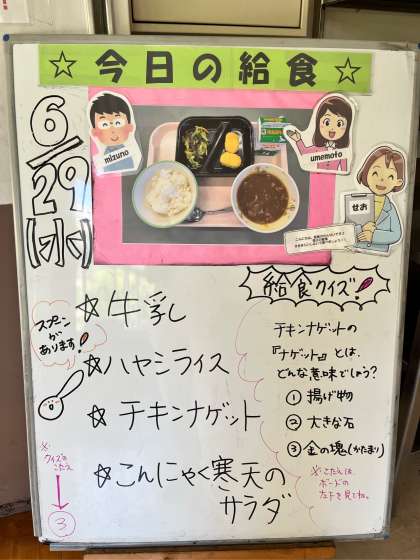 ☆今日の給食☆
6/29(水)
mizuno
umemoto
せお
スプーンが
あります!
☆牛乳
☆ハヤシライス
☆チキンナゲット
☆こんにゃく寒天の
サラダ
給食クイズ!
チキンナゲットの
『ナゲット』とは、
どんな意味でしょう?
①揚げ物
②大きな石
③金の塊(かたまり)
※こたえは
ボードの
左下を見てね。
※
クイズの
こたえ
↓
③